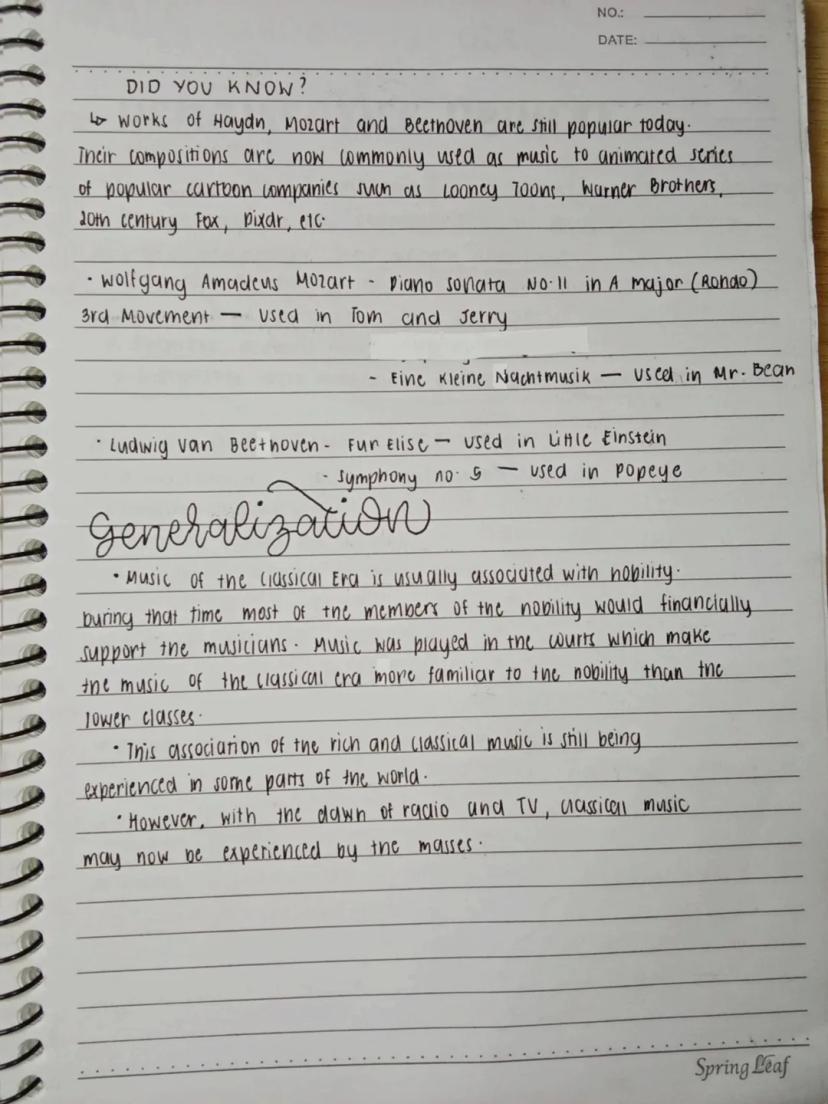 NO.:
DATE:
DID YOU KNOW?
↳ Works of Haydn, Mozart and Beethoven are still popular today.
Their compositions are now commonly used as music to animated series
of popular cartoon companies such as Looney Toons, Warner Brothers,
20th century Fox, Pixar, etc.
• Wolfgang Amadeus Mozart - Piano Sonata No. 11 in A major (Rondo)
3rd Movement — used in Tom and Jerry
- Eine Kleine Nachtmusik — used in Mr. Bean
• Ludwig Van Beethoven - Fur Elise — used in Little Einstein
- Symphony no. 5 — used in Popeye
Generalization
• Music of the Classical Era is usually associated with nobility.
During that time most of the members of the nobility would financially
support the musicians. Music was played in the courts which make
the music of the classical era more familiar to the nobility than the
lower classes.
• This association of the rich and classical music is still being
experienced in some parts of the world.
• However, with the dawn of radio and TV, classical music
may now be experienced by the masses.
Spring Leaf